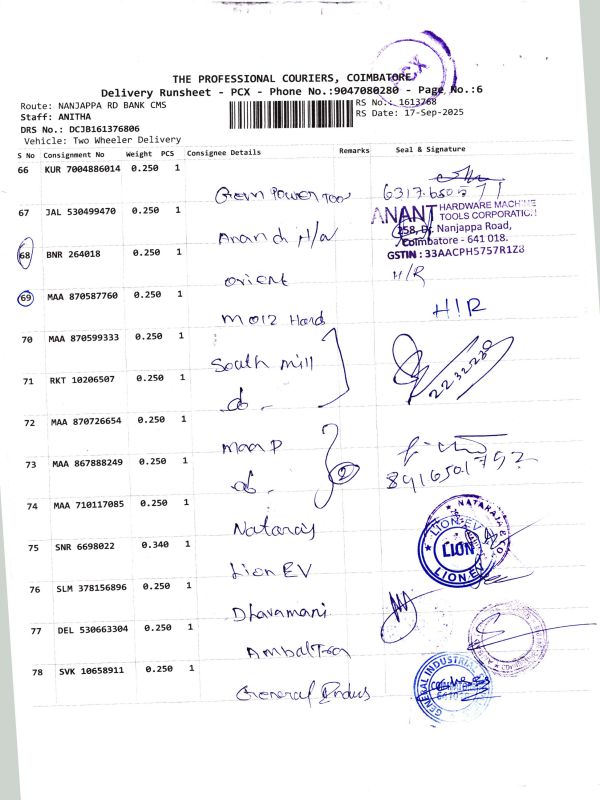 PCX
THE PROFESSIONAL COURIERS, COIMBATORE
Delivery Runsheet - PCX - Phone No.:9047080280 - Page No.:6
Route: NANJAPPA RD BANK CMS
RS No.: 1613768
Staff: ANITHA
RS Date: 17-Sep-2025
DRS No.: DCJB161376806
Vehicle: Two Wheeler Delivery
S No Consignment No Weight PCS Consignee Details Remarks Seal & Signature
66 KUR 7004886014 0.250 1
Gem Power Tool
67 JAL 530499470 0.250 1
ANANT HARDWARE MACHINE
TOOLS CORPORATION
258, Dr. Nanjappa Road,
Coimbatore - 641 018.
GSTIN : 33AACPH5757R1Z8
Anand H/W
68 BNR 264018 0.250 1
Orient H/R
69 MAA 870587760 0.250 1
Moiz Hard H/R
70 MAA 870599333 0.250 1
South Mill
71 RKT 10206507 0.250 1
do.
72 MAA 870726654 0.250 1
Maa P
73 MAA 867888249 0.250 1
do. 2
8916501792
74 MAA 710117085 0.250 1
Nataraj
NATARAJ & CO
75 SNR 6698022 0.340 1
LION EV
LION
LION EV
Lion EV
76 SLM 378156896 0.250 1
Dhavamani
77 DEL 530663304 0.250 1
78 SVK 10658911 0.250 1
General Indus
GENERAL INDUSTRIAL